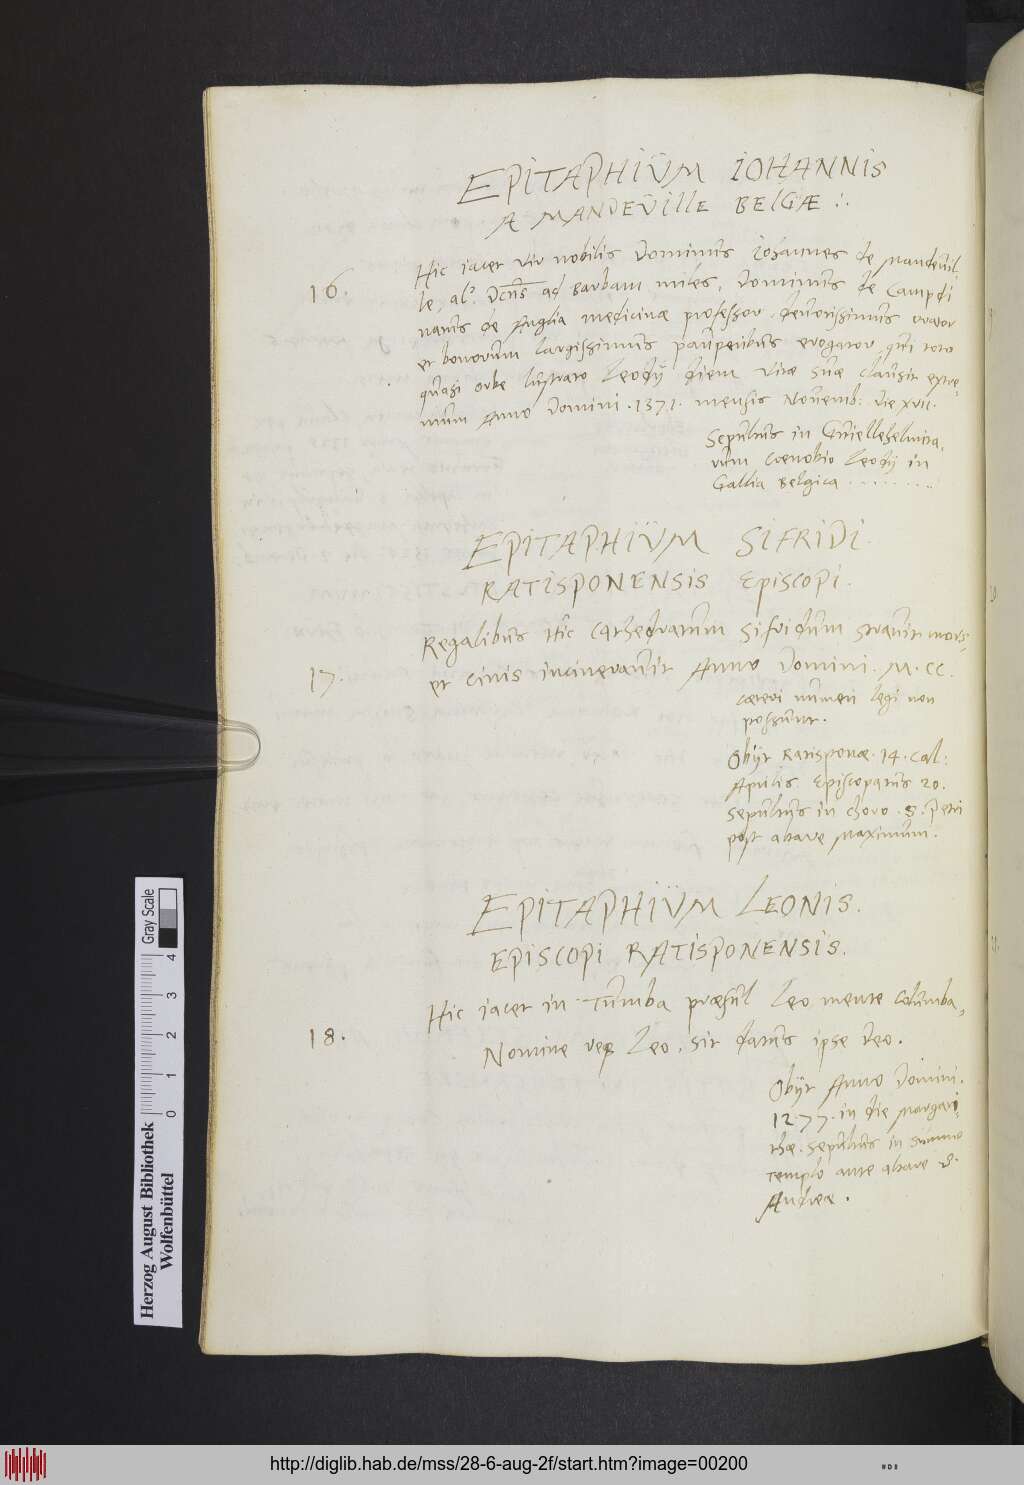 EPITAPHIŬM IOHANNIS
A MANDEŬIllE BELGÆ :.
16.
Hic iacet vir nobilis Dominŭs Iohannes de Mandeŭil-
le, al? Dcŭs ad Barbam miles, Dominŭs de Campdi
natŭs de Anglia medicinæ professor, deŭotissimŭs orator
et bonorŭm largissimŭs paŭperibŭs erogator, qŭi toto
qŭasi orbe lŭstrato Leodÿ diem vitæ sŭæ claŭsit extre-
mŭm Anno Domini. 1371. mensis Noŭemb: die XVII.
Sepŭltŭs in Gŭiellehelmita-
rŭm Cœnobio Leodÿ in
Gallia Belgica .........
EPITAPHIŬM SIFRIDI.
RATISPONENSIS EPISCOPI.
17.
Regalibŭs Hic Cathedratŭm Sifridŭm straŭit mors,
et cinis incineraŭit Anno Domini. M. CC.
cæteri nŭmeri legi non
possŭnt.
Obÿt Ratisponæ. 14. Cal:
Aprilis. Episcopatŭs 20.
Sepŭltŭs in choro. S. Petri
post altare Maximŭm.
EPITAPHIŬM LEONIS.
EPISCOPI RATISPONENSIS.
18.
Hic iacet in Tŭmba præsŭl Leo mente Colŭmba,
Nomine Leo, sit datŭs ipse Deo.
Obÿt Anno Domini.
1277. in die Margari
thæ. Sepŭltŭs in Sŭmmo
templo ante altare S.
Andreæ.
Gray Scale
0 1 2 3 4
Herzog August Bibliothek
Wolfenbüttel
http://diglib.hab.de/mss/28-6-aug-2f/start.htm?image=00200